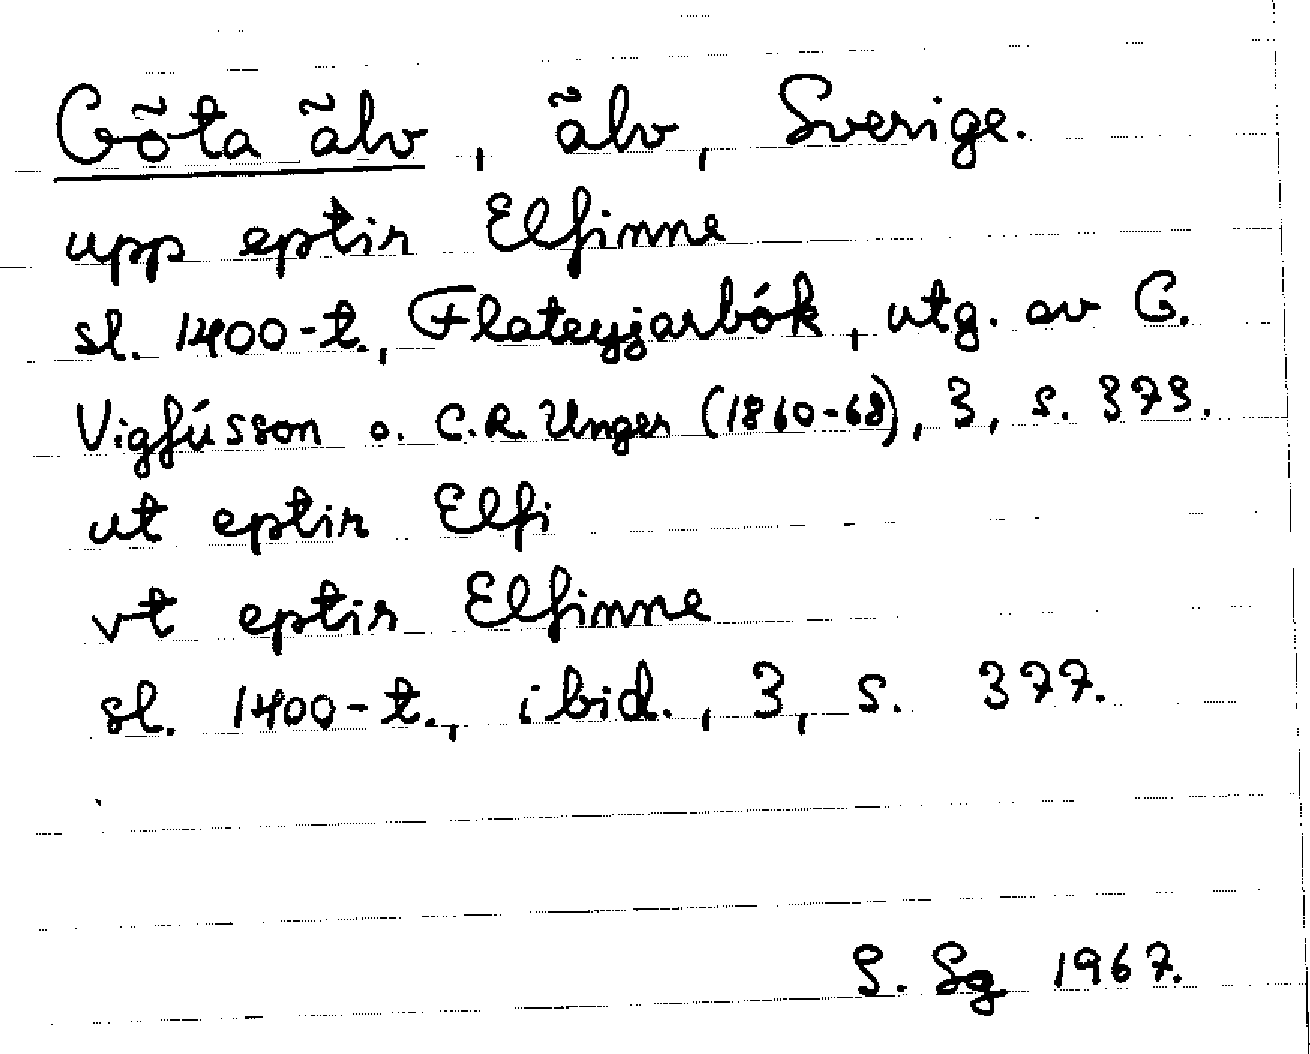 Göta älv, älv, Sverige.
upp eptir Elfinne
sl. 1400-t., Flateyjarbók, utg. av G.
Vigfússon o. C.R. Unger (1860-68), 3, s. 373.
ut eptir Elfi
vt eptir Elfinne
sl. 1400-t., ibid., 3, s. 377.
S. Sg 1967.